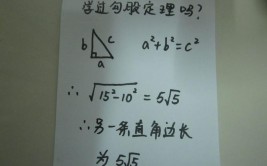 学过勾股定理吗?
b c a a²+b²=c²
∴ √(15²-10²) = 5√5
∴另一条直角边长
为 5√5